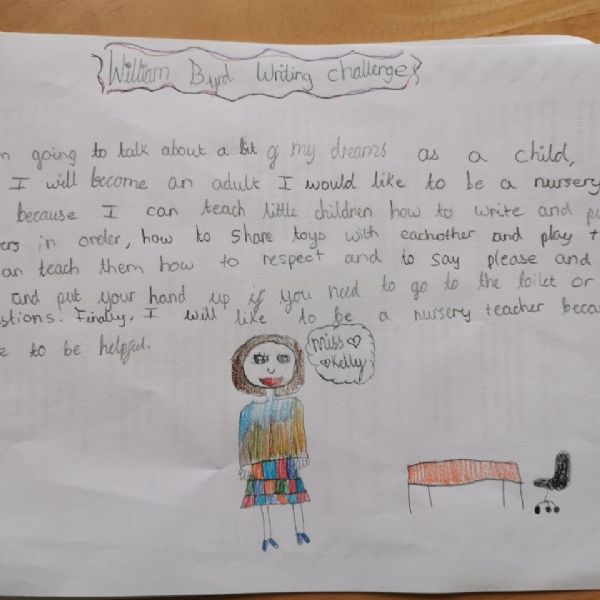 William Byrd Writing challenge
going to talk about a bit of my dreams as a child,
I will become an adult I would like to be a nursery
because I can teach little children how to write and
in order, how to share toys with eachother and play
teach them how to respect and to say please and
and put your hand up if you need to go to the toilet or
Finally, I will like to be a nursery teacher
to be helpful.
Miss
Kelly